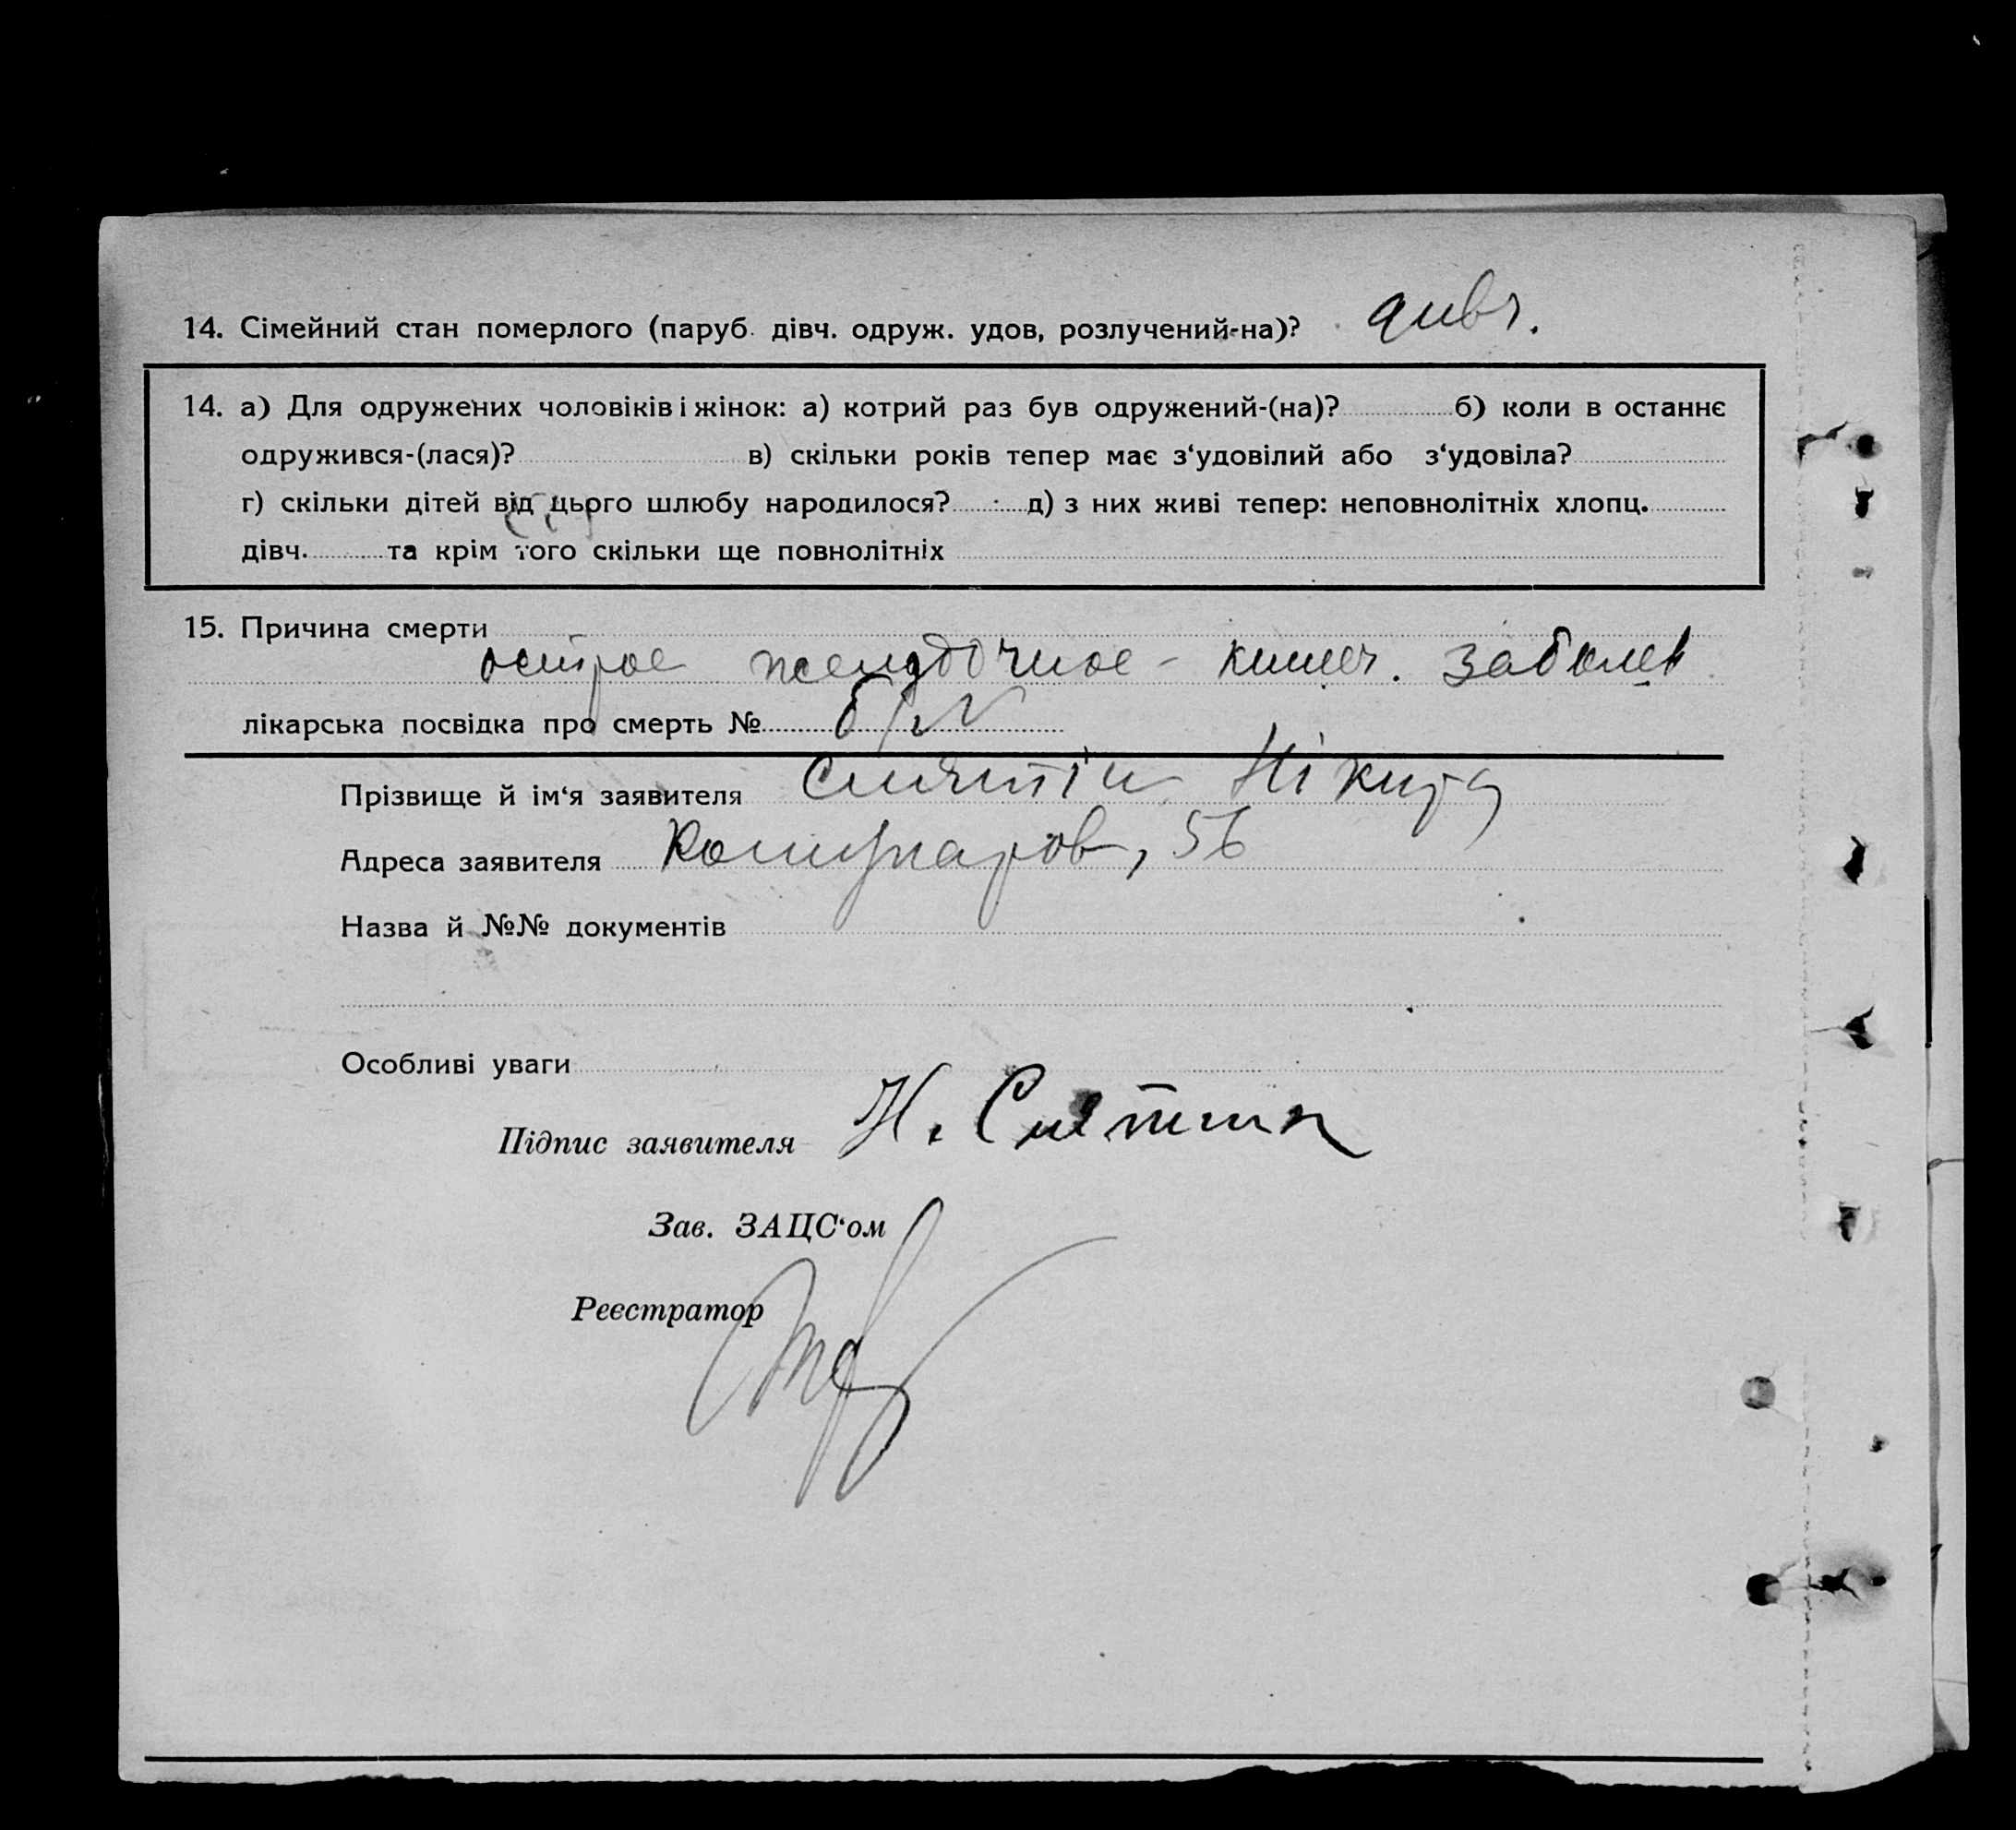 14. Сімейний стан померлого (паруб. дівч. одруж. удов, розлучений-на)? дивч.
14. а) Для одружених чоловіків і жінок: а) котрий раз був одружений-(на)? б) коли в останнє
одружився-(лася)? в) скільки років тепер має з‘удовілий або з‘удовіла?
г) скільки дітей від цього шлюбу народилося? д) з них живі тепер: неповнолітніх хлопц.
дівч. та крім того скільки ще повнолітніх
15. Причина смерти
острое желудочное - кишеч. заболев
лікарська посвідка про смерть № б/N
Прізвище й ім‘я заявителя Нікита
Адреса заявителя , 56
Назва й №№ документів
Особливі уваги
Підпис заявителя Н.
Зав. ЗАЦС‘ом
Реєстратор